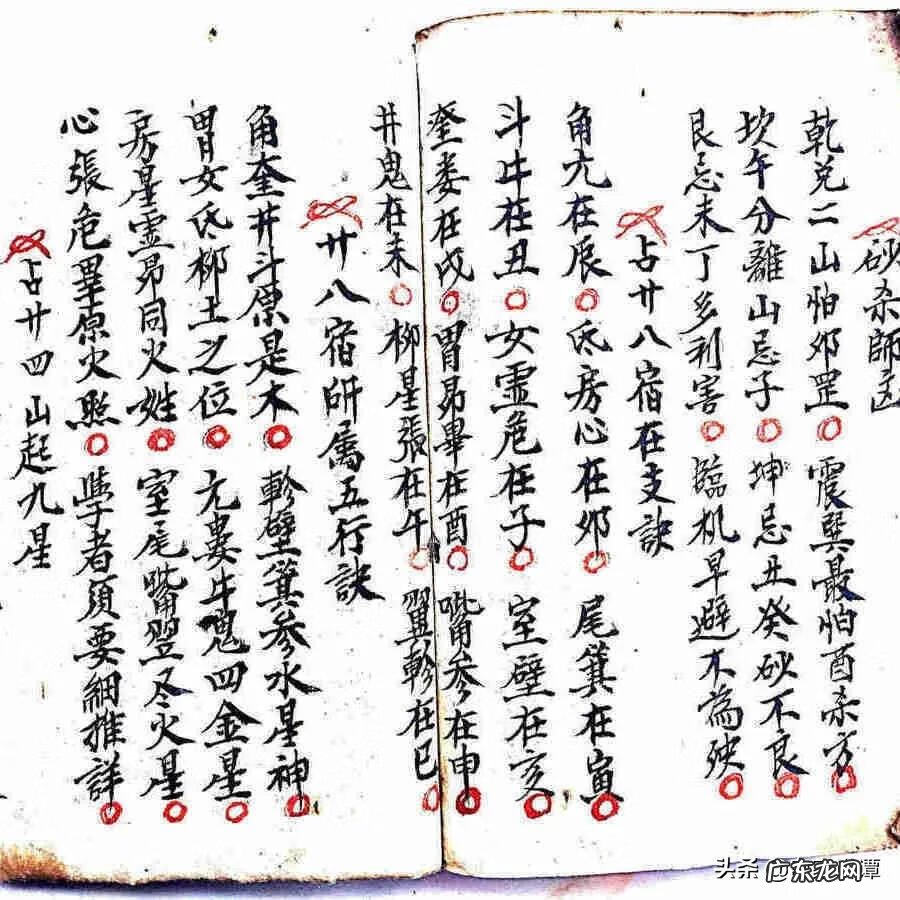 砂杀師訣
乾兑二山怕卯罡 震巽最怕酉杀方
坎午分離山忌子 坤忌丑癸砂不良
艮忌未丁多利害 臨机早避不為殃
占廿八宿在支訣
角亢在辰 氐房心在卯 尾箕在寅
斗牛在丑 女虚危在子 室壁在亥
奎娄在戍 胃昴畢在酉 嘴参在申
井鬼在未 柳星張在午 翼軫在巳
廿八宿所属五行訣
角奎井斗原是木 軫壁箕参水星神
胃女氐柳土之位 亢娄牛鬼四金星
房星虚昴同火姓 室尾嘴翌尽火星
心張危畢原火熙 学者須要細推詳
占廿四山起九星
头条 广东龙网 潭